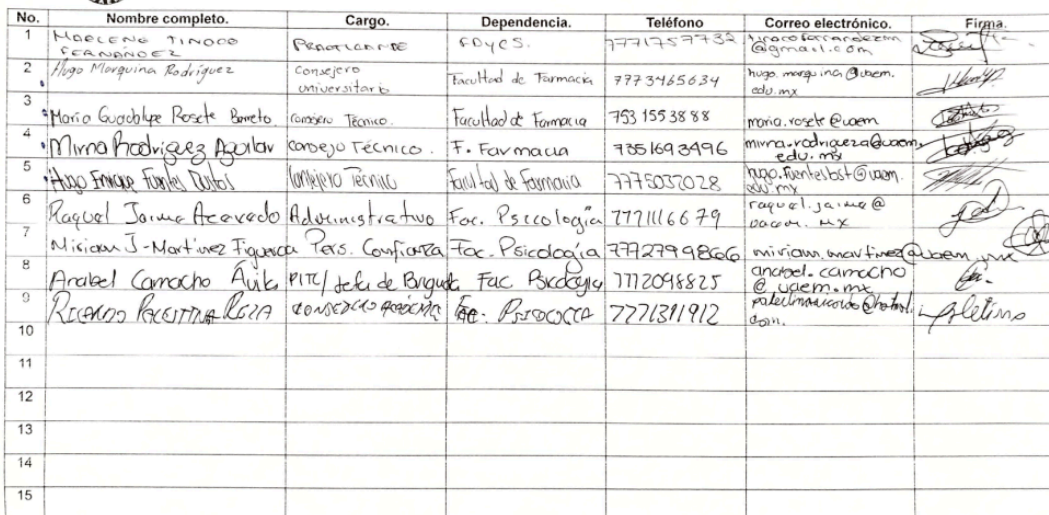 No. Nombre completo. Cargo. Dependencia. Teléfono Correo electrónico. Firma.
1 MARLENE TINOCO FERNÁNDEZ PRACTICANTE FDyCS. 7771757732 @gmail.com
2 Hugo Marquina Rodríguez Consejero universitario Facultad de Farmacia 7773465634 hugo.marquina@uaem.edu.mx
3 Maria Guadalupe Rosete Barreto Consejero Técnico. Facultad de Farmacia 753 155 38 88 maria.rosete@uaem
4 Mirna Rodriguez Aguilar Consejo Técnico. F. Farmacia 7351693496 mirna.rodrigueza@uaem.edu.mx
5 Hugo Enrique Fuentes Bustos Consejero Técnico Facultad de Farmacia 7775032028 hugo.fuentesbst@uaem.edu.mx
6 Raquel Jaime Acevedo Administrativo Fac. Psicología 7771116679 raquel.jaime@uaem.mx
7 Miriam J-Martinez Figueroa Pers. Confianza Fac. Psicología 7772799866 miriam.martinez@uaem.mx
8 Anabel Camacho Ávila PITC/ Jefa de Fac Psicología 7772098825 anabel.camacho@uaem.mx
9 RICARDO PALESTINA ROZA CONSEJERO ACADÉMICO Fac. PSICOLOGÍA 7771311912
10
11
12
13
14
15